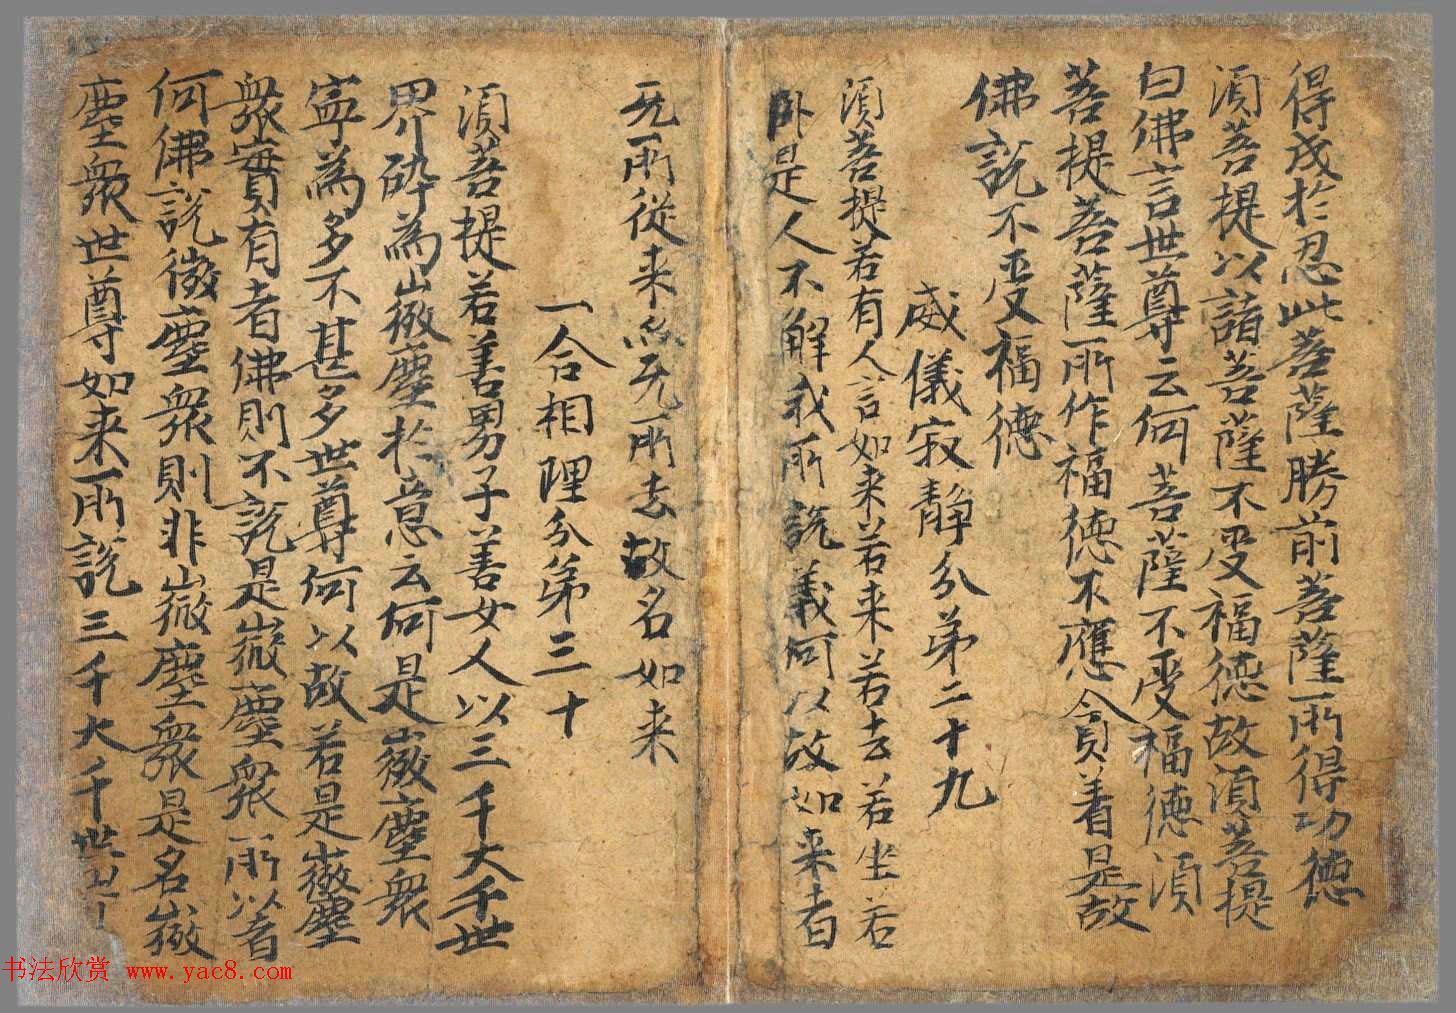 得成於忍此菩薩勝前菩薩所得功德
湏菩提以諸菩薩不受福德故湏菩提
白佛言世尊云何菩薩不受福德湏
菩提菩薩所作福德不應貪着是故
佛說不受福德
威儀寂静分弟二十九
湏菩提若有人言如来若来若去若坐若
卧是人不解我所說義何以故如来者
无所從来亦无所去故名如来
一合相理分弟三十
湏菩提若善男子善女人以三千大千世
界碎為微塵於意云何是微塵衆
寧為多不甚多世尊何以故若是微塵
衆實有者佛則不說是微塵衆所以者
何佛說微塵衆則非微塵衆是名微
塵衆世尊如来所說三千大千世界
书法欣赏 www.yac8.com